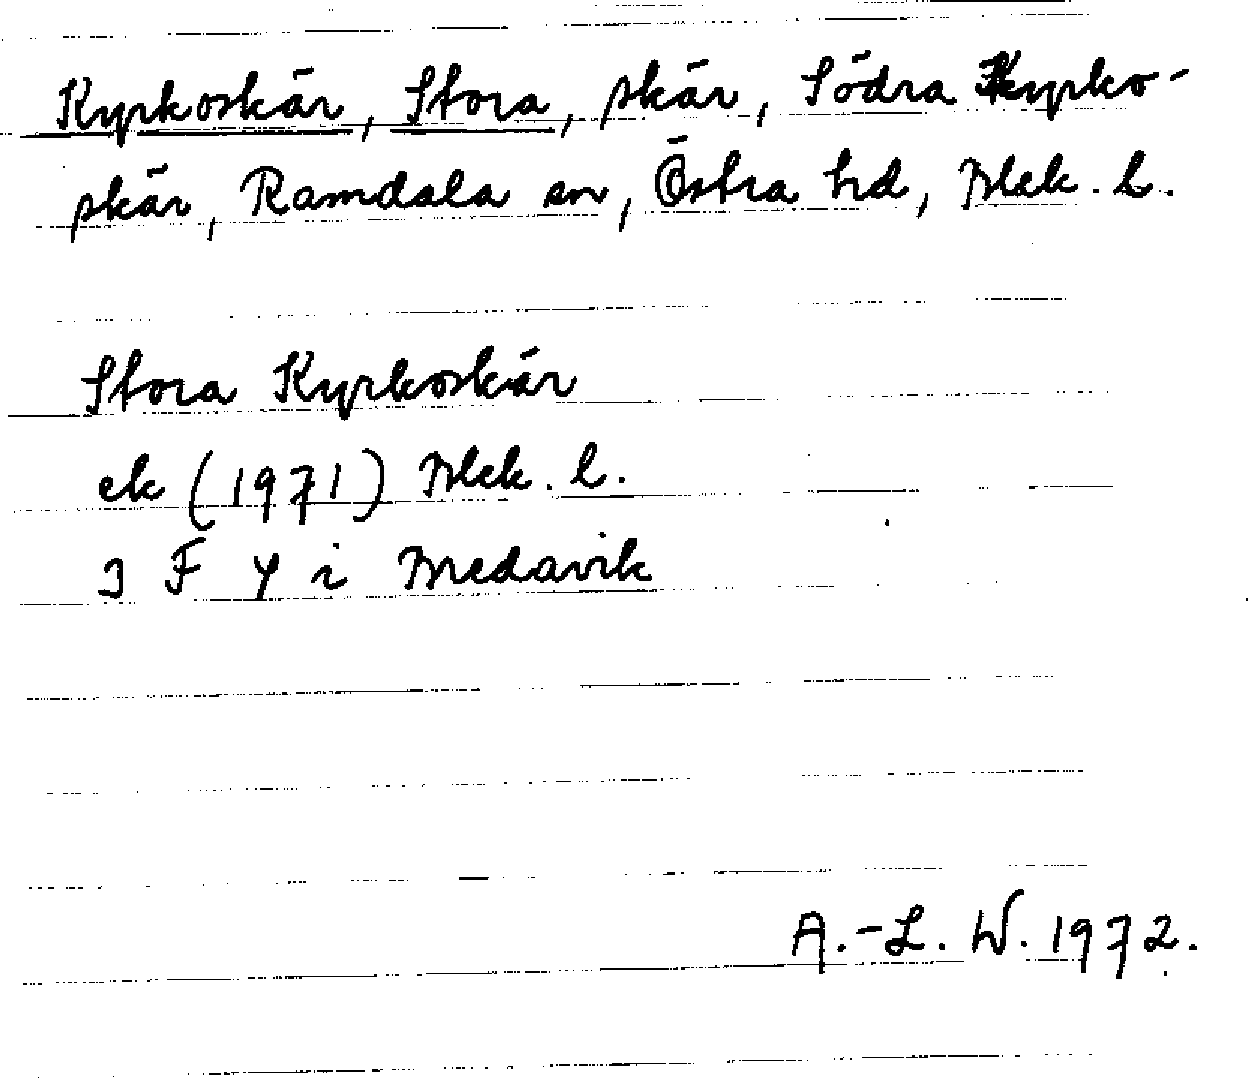 Kyrkoskär, Stora, skär, Södra Kyrko-
skär, Ramdala sn, Östra hd, Blek. l.
Stora Kyrkoskär
ek (1971) Blek. l.
3 F Y i Bredavik
A.-L. W. 1972.